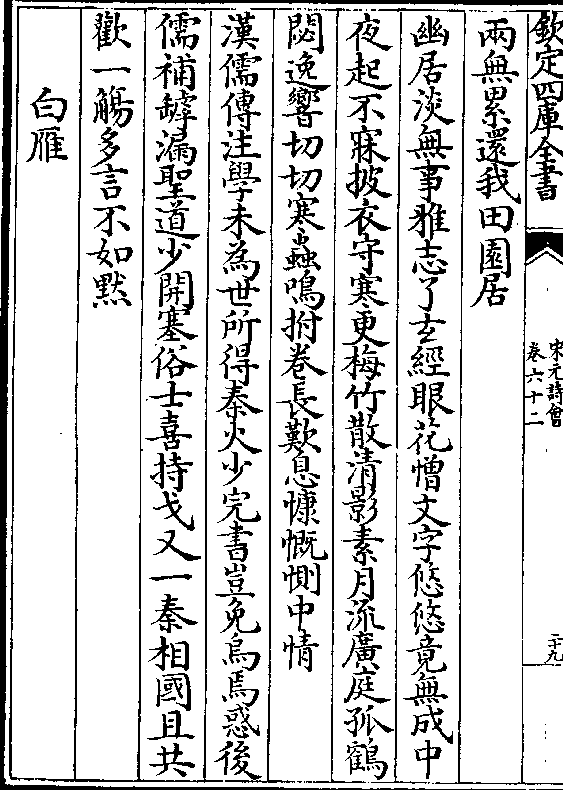 欽定四庫全書
宋元詩會
卷六十二
二十九
兩無累還我田園居
幽居淡無事雅志了玄經眼花憎文字悠悠竟無成中
夜起不寐披衣守寒更梅竹散清影素月流廣庭孤鶴
閟逸響切切寒蟲鳴拊卷長歎息慷慨惻中情
漢儒傳注學未為世所得秦火少完書豈免烏焉惑後
儒補罅漏聖道少開塞俗士喜持戈又一秦相國且共
歡一觴多言不如默
白雁